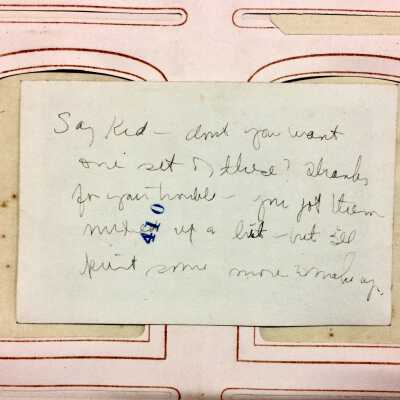 Say Kid – dont you want
one set of these? Thanks
for your trouble – you got them
mixed up a bit – but I'll
print some more & make up.
410